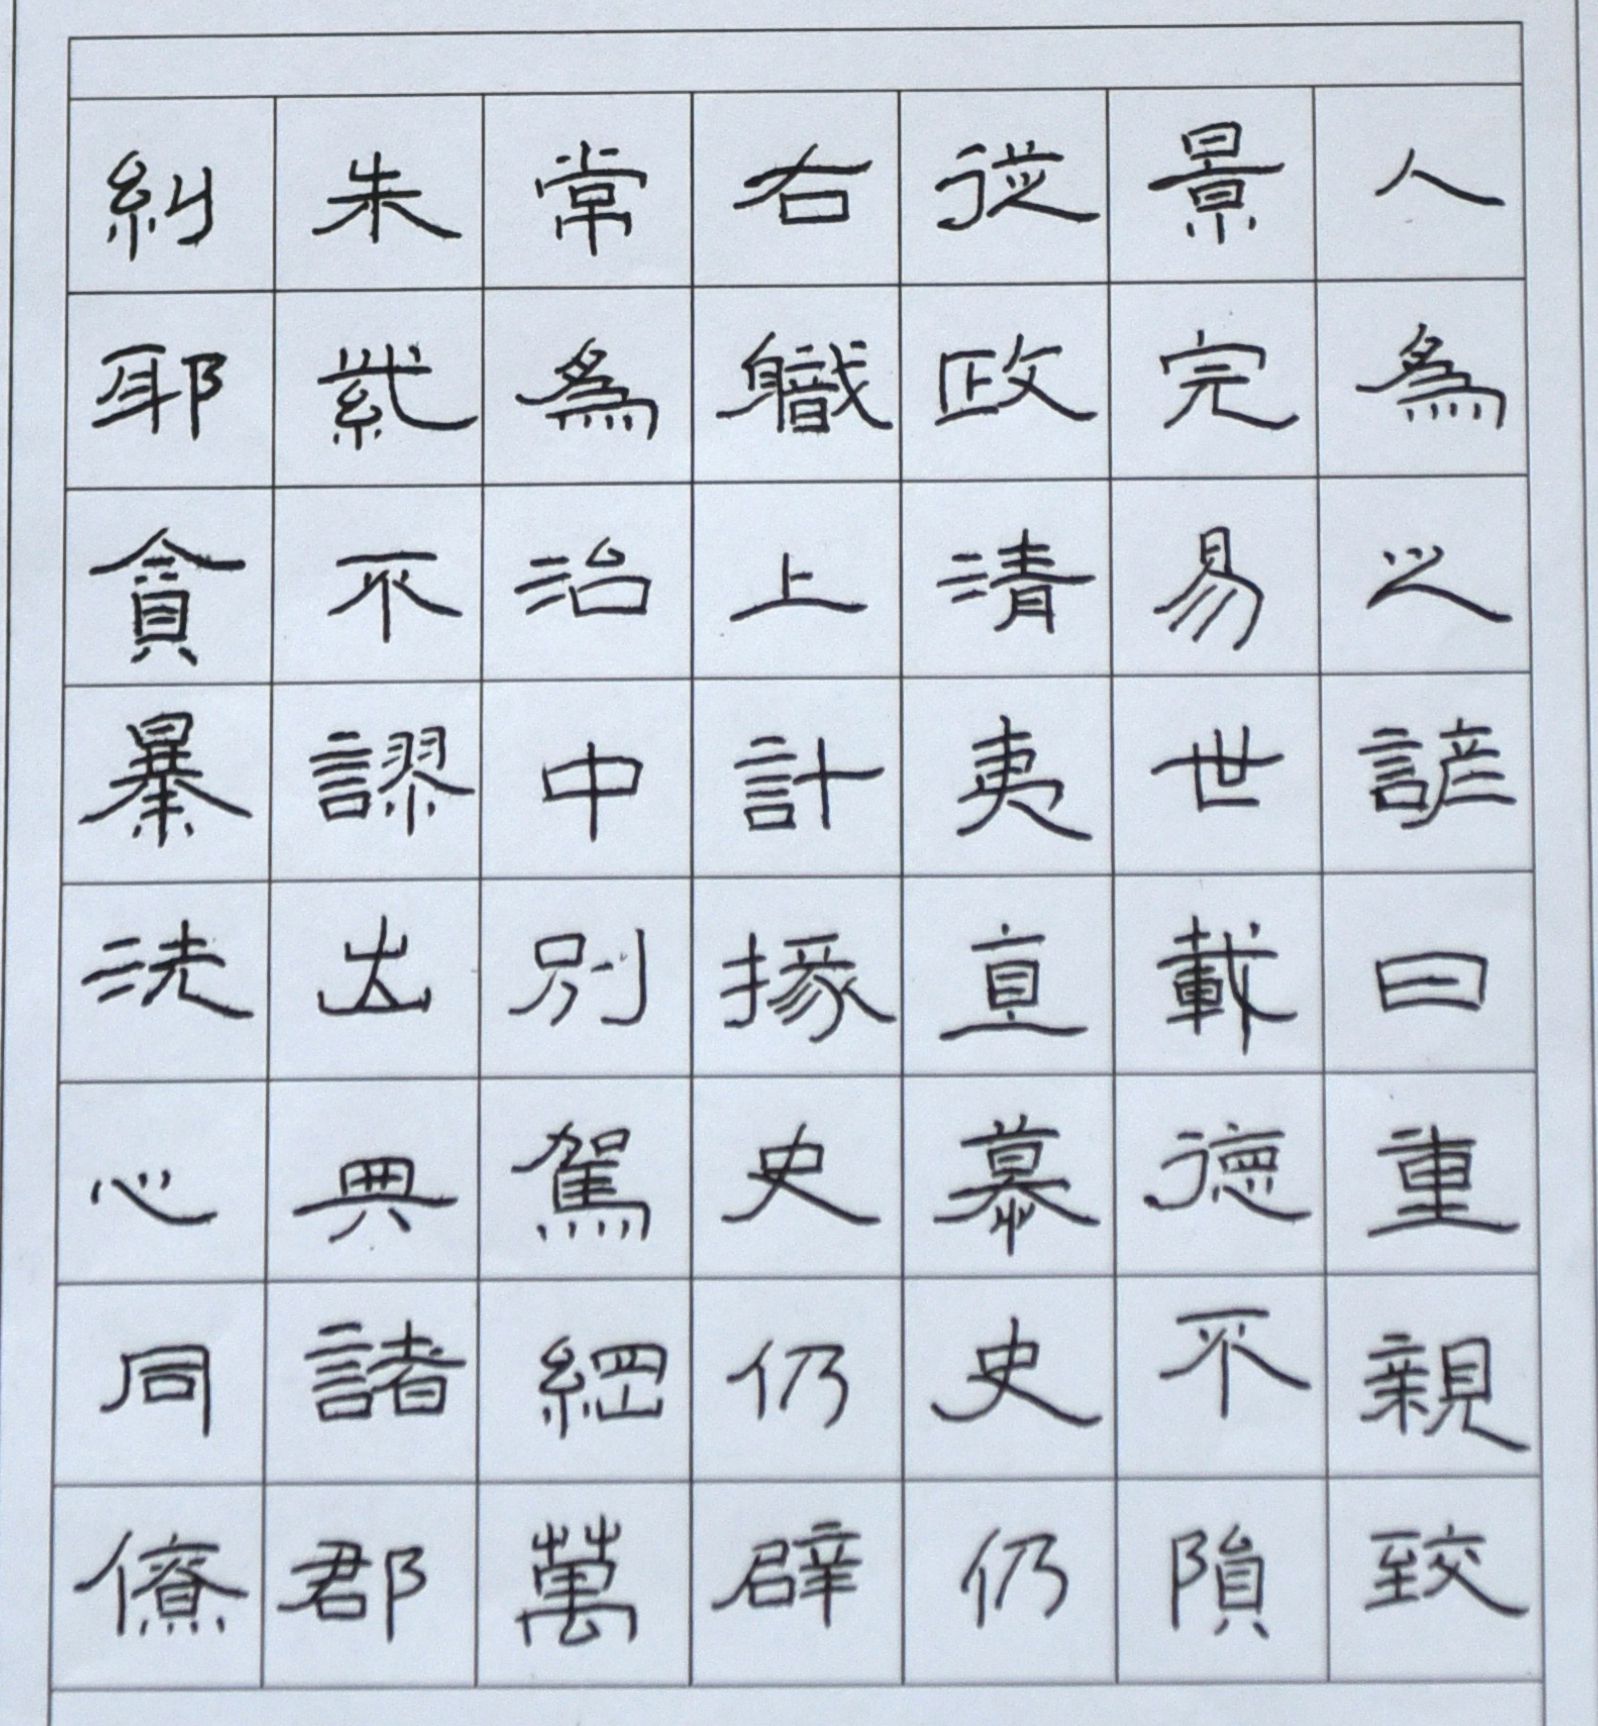 人為之諺曰重親致
景完易世載德不隕
從政清夷直慕史仍
右職上計掾史仍辟
常為治中別駕綱萬
朱紫不謬出典諸郡
糾耶貪暴洗心同僚